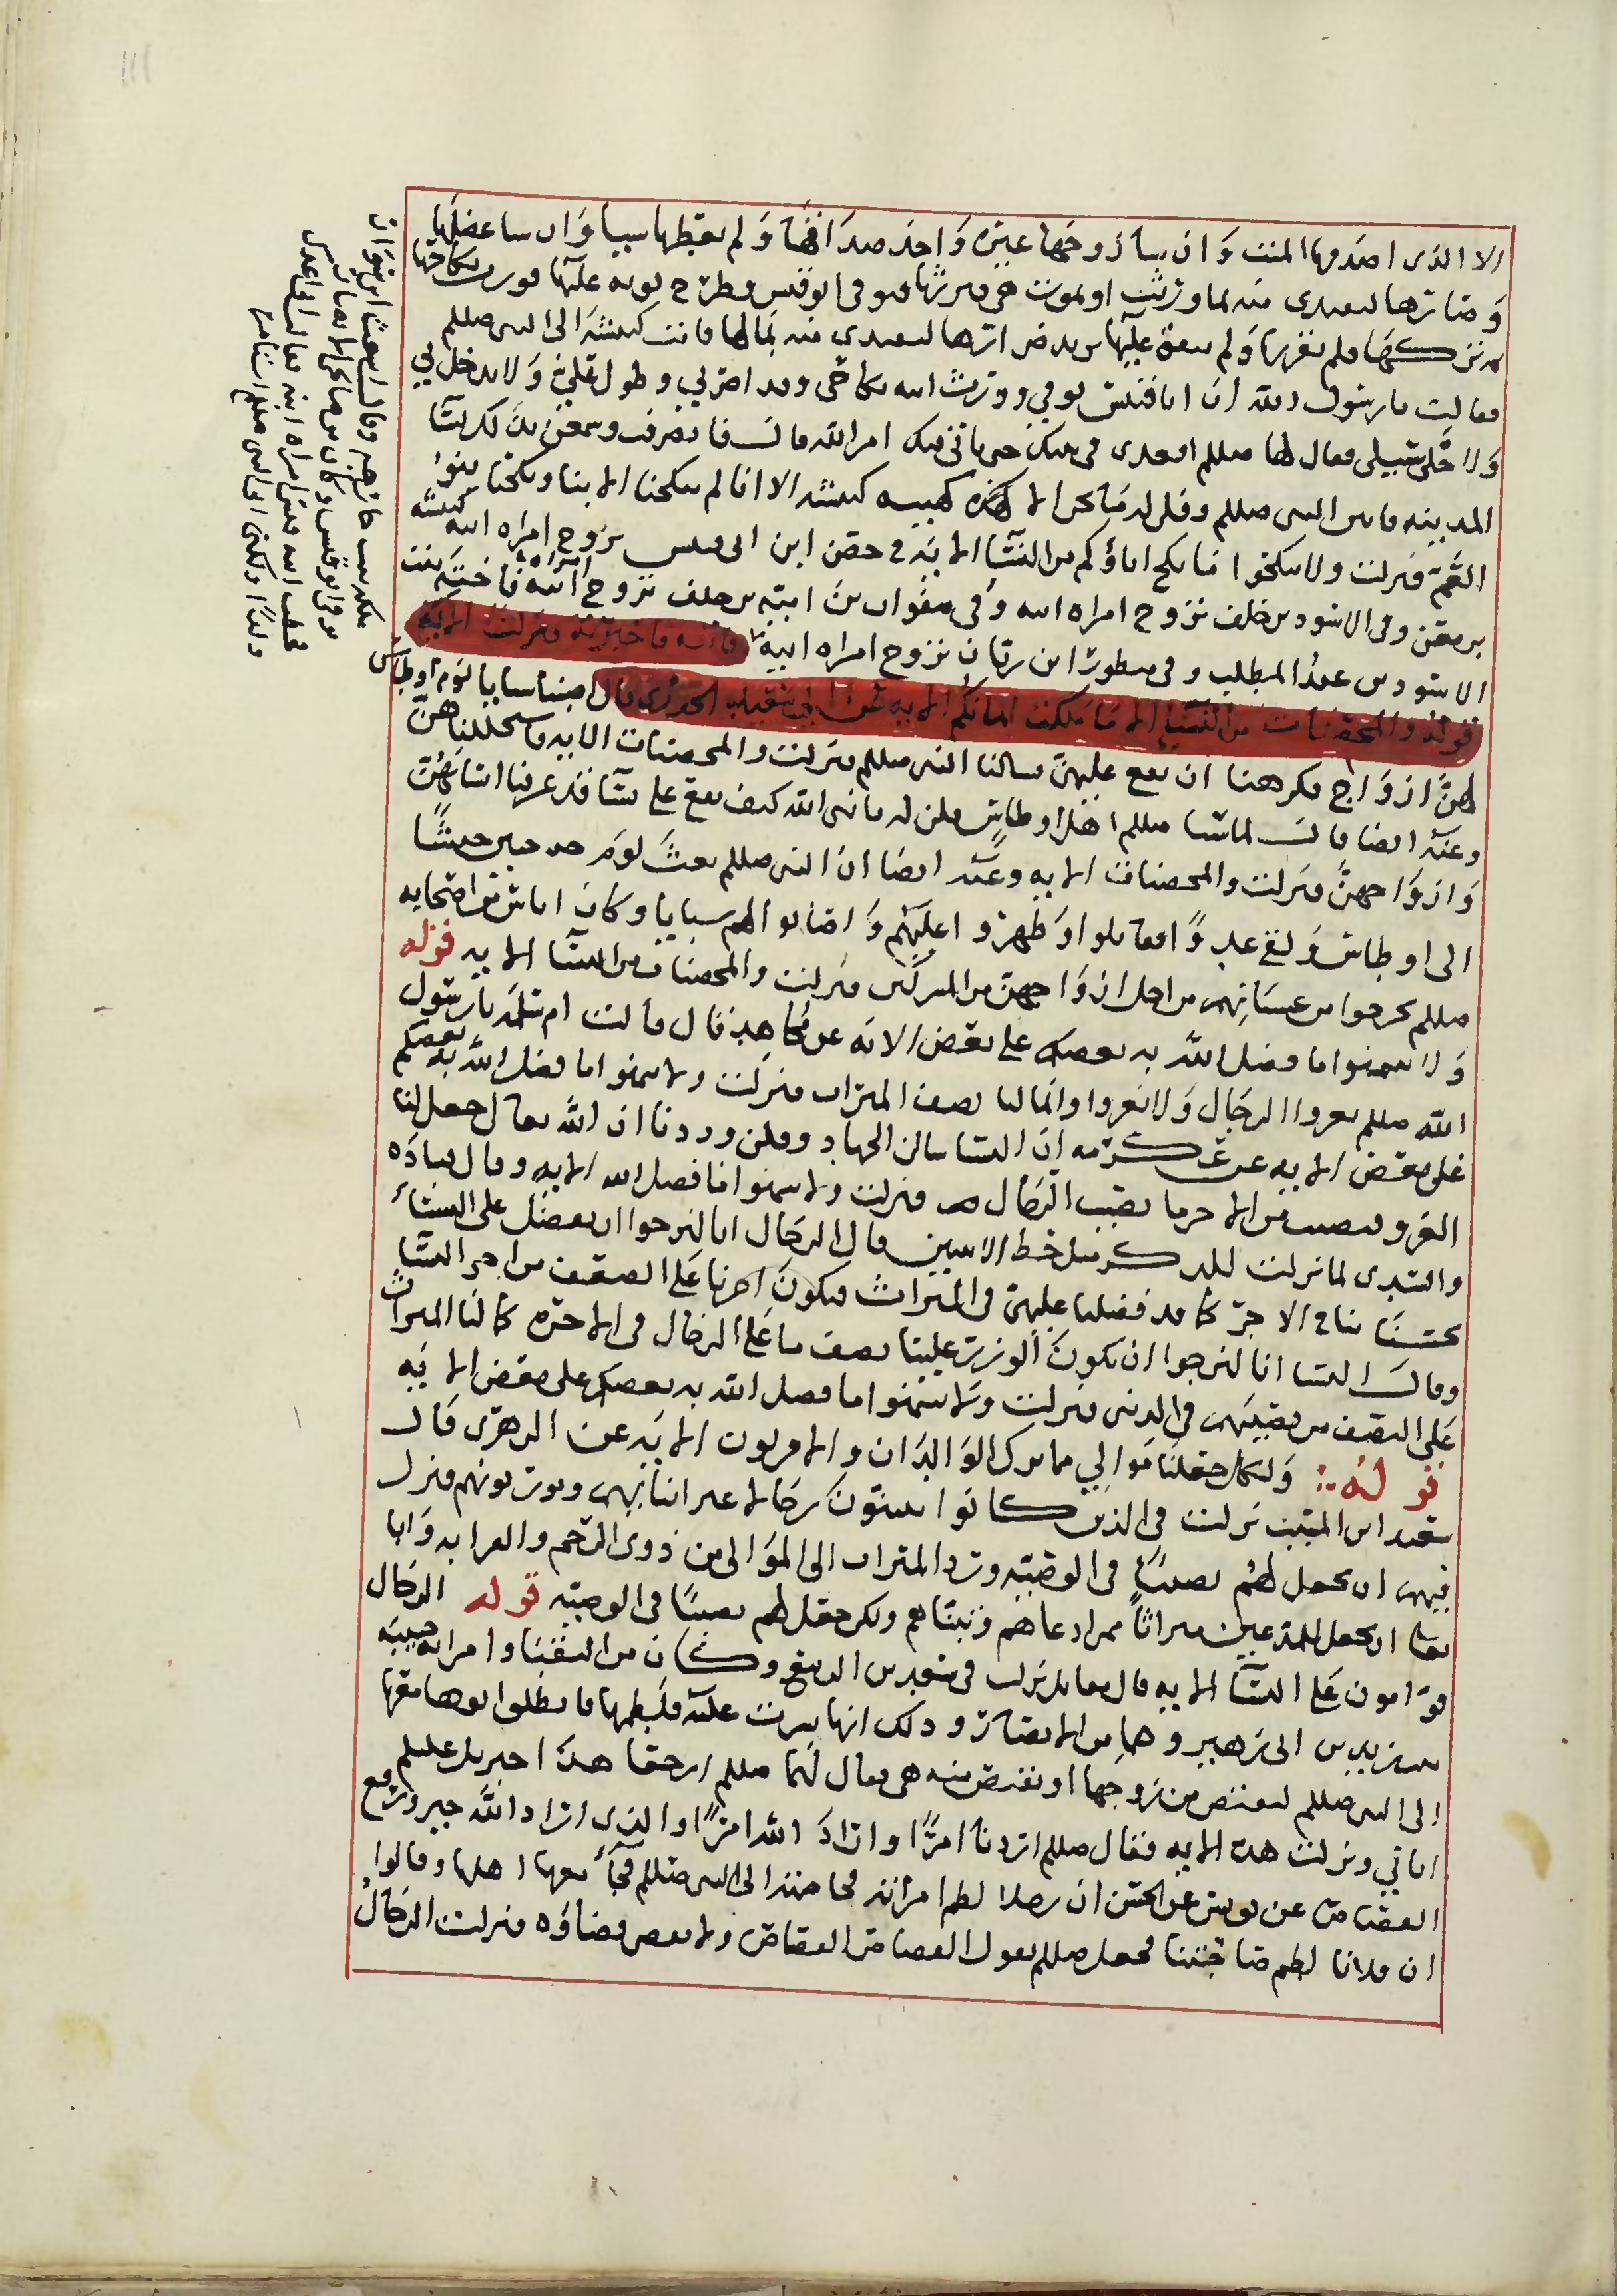 الا الذى اصدقها الميت وان شا زوجها غيره واخذ صداقها ولم يعطها شيا وان شا عضلها
وضارها لتفتدى منه بما ورثت او تموت هى فيرثها فتوفى ابو قيس وطرح ثوبه عليها فورث نكاحها
ثم تركها فلم يقربها ولم ينفق عليها يضارها لتفتدى منه بمالها فاتت كبيشة الى النبي صللم
فقالت يا رسول الله ان ابا قيس توفى وورث ابنه نكاحى وقد اضر بي وطول علي ولا يدخل بي
ولا يخلى سبيلى فقال لها صللم اقعدى فى بيتك حتى ياتى فيك امر الله قال فانصرفت وسمعن بذلك نسا
المدينة فاتين النبي صللم وقلن له ما نحن الا كهيئة كبيشة الا انا لم ينكحنا الابنا ونكحنا بنوا
العم فنزلت ولا تنكحوا ما نكح اباؤكم من النسا الاية فى حصن ابن ابى قيس تزوج امراة ابيه كبيشه
بنت معن وفى الاسود بن خلف تزوج امراة ابيه وفى صفوان بن امية بن خلف تزوج امراة ابيه فاختة بنت
الاسود بن عبد المطلب وفى منظور ابن زبان تزوج امراة ابيه فاتته فاخبرته فنزلت الاية
قوله والمحصنات من النسا الا ما ملكت ايمانكم الاية عن ابى سعيد الخدرى قال اصبنا سبايا يوم اوطاس
لهن ازواج فكرهنا ان نقع عليهن فسالنا النبى صللم فنزلت والمحصنات الاية فاستحللناهن
وعنه ايضا قال لما سبا صللم اهل اوطاس قلن له يا نبى الله كيف نقع على نسا قد عرفنا انسابهن
وازواجهن فنزلت والمحصنات الاية وعنه ايضا ان النبى صللم بعث يوم حنين جيشا
الى اوطاس ولقى عدوا فقاتلوا وظهروا عليهم واصابوا لهم سبايا وكان اناس من اصحابه
صللم تحرجوا من غشيانهن من اجل ازواجهن من المشركين فنزلت والمحصنات من النسا الاية قوله
ولا تتمنوا ما فضل الله به بعضكم على بعض الاية عن مجاهد قال قالت ام سلمة يا رسول
الله صللم يغزوا الرجال ولا نغزوا وانما لنا نصف الميراث فنزلت ولا تتمنوا ما فضل الله به بعضكم
على بعض الاية عن عكرمه ان النسا سالن الجهاد وقلن وددنا ان الله تعالى جعل لنا
الغزو فنصيب من الاجر ما نصيب الرجال فنزلت ولا تتمنوا ما فضل الله الاية وقال قتاده
والسدى لما نزلت للذكر مثل حظ الانثيين قال الرجال انا لنرجوا ان نفضل على النساء
بحسناتنا فى الاجر كما قد فضلنا عليهن فى الميراث فيكون اجرنا على الضعف من اجر النسا
وقالت النسا انا لنرجوا ان يكون الوزر علينا نصف ما على الرجال فى الاخره كما لنا الميراث
على النصف من نصيبهم فى الدنيا فنزلت ولا تتمنوا ما فضل الله به بعضكم على بعض الاية
قوله ولكل جعلنا موالي مما ترك الوالدان والاقربون الاية عن الزهرى قال
سعيد ابن المسيب نزلت فى الذين كانوا يتبنون رجالا غير ابنائهم ويورثونهم فنزل
فيهم ان يجعل لهم نصيبا فى الوصية ورد الميراث الى الموالى من ذوى الرحم والقرابه وابا
تعالى ان يجعل للمدعيين ميراثا ممن ادعاهم وتبناهم ولكن جعل لهم نصيبا فى الوصيه قوله الرجال
قوامون على النسا الاية قال مقاتل نزلت فى سعد بن الربيع وكان من النقبا وامراته حبيبه
بنت زيد بن ابى زهير وهما من الانصار وذلك انها نشزت عليه فلطمها فانطلق ابوها معها
الى النبي صللم لتقتص من زوجها او يقتص منه هى فقال لهما صللم ارجعا هذا جبريل عليلم
اتاني ونزلت هذه الاية فقال صللم اردنا امرا واراد الله امرا والذى اراد الله خير ورفع
القصاص عن يونس عن الحسن ان رجلا لطم امراته فخاصمته الى النبى صللم فجاء معها اهلها وقالوا
ان فلانا لطم صاحبتنا فجعل صللم يقول القصاص القصاص ولا يقص قضاؤه فنزلت الرجال